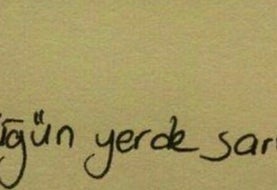 üğün yerde sarı